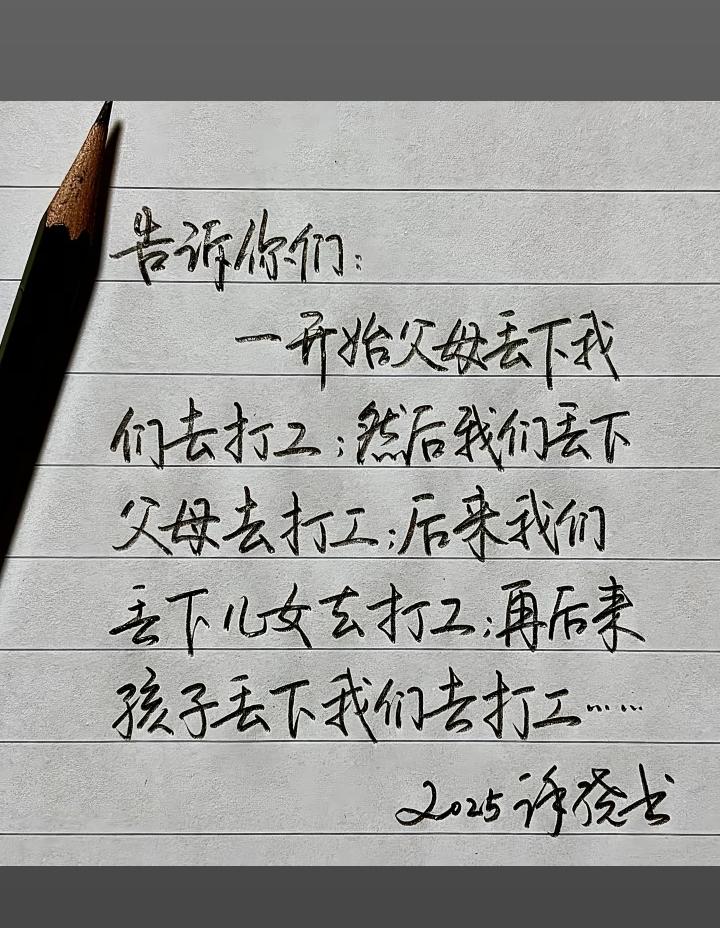 告诉你们：
一开始父母丢下我
们去打工；然后我们丢下
父母去打工；后来我们
丢下儿女去打工；再后来
孩子丢下我们去打工……
2025 许晓书